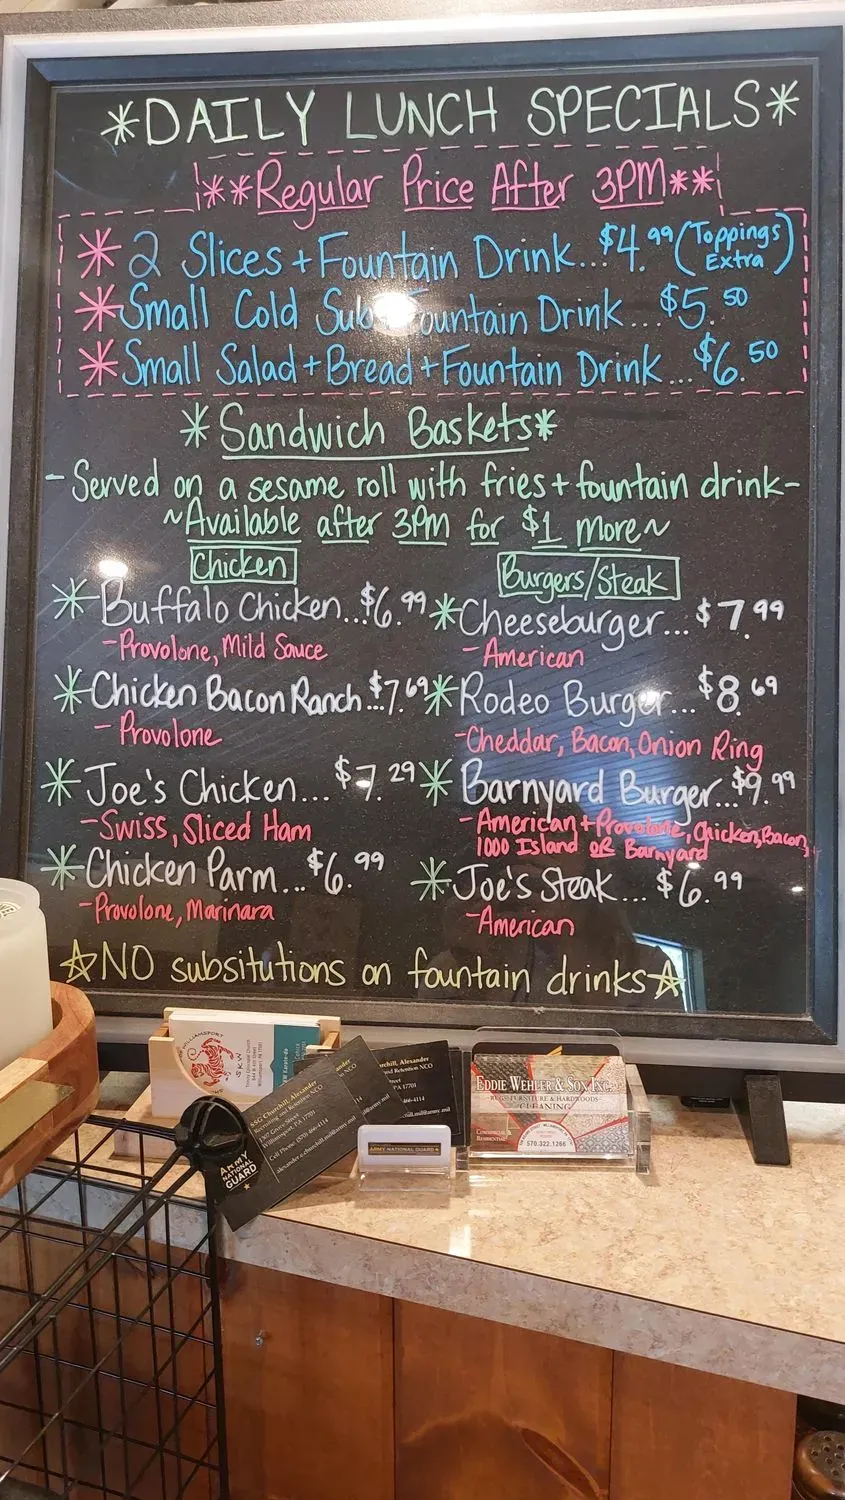 *DAILY LUNCH SPECIALS*
**Regular Price After 3PM**
* 2 Slices + Fountain Drink...$4.99 (Toppings Extra)
* Small Cold Sub + Fountain Drink...$5.50
* Small Salad + Bread + Fountain Drink...$6.50
*Sandwich Baskets*
- Served on a sesame roll with fries + fountain drink -
~Available after 3PM for $1 more~
Chicken
* Buffalo Chicken...$6.99
- Provolone, Mild Sauce
* Chicken Bacon Ranch...$7.69
- Provolone
* Joe's Chicken...$7.29
- Swiss, Sliced Ham
* Chicken Parm...$6.99
- Provolone, Marinara
Burgers/Steak
* Cheeseburger...$7.99
- American
* Rodeo Burger...$8.69
- Cheddar, Bacon, Onion Ring
* Barnyard Burger...$9.99
- American + Provolone, Chicken, Bacon,
1000 Island OR Barnyard
* Joe's Steak...$6.99
- American
☆NO subsitutions on fountain drinks☆
WILLIAMSPORT
SKW
Trinity Episcopal Church
Williamsport, PA 17701
SSG Churchill, Alexander
Recruiting and Retention NCO
Williamsport, PA 17701
Cell Phone: (570) 466-4114
alexander.c.churchill.mil@army.mil
ARMY
NATIONAL
GUARD
Churchill, Alexander
and Retention NCO
ARMY NATIONAL GUARD
EDDIE WEHLER & SON INC.
RUGS, FURNITURE & HARDWOODS
CLEANING
COMMERCIAL &
RESIDENTIAL
570.322.1266